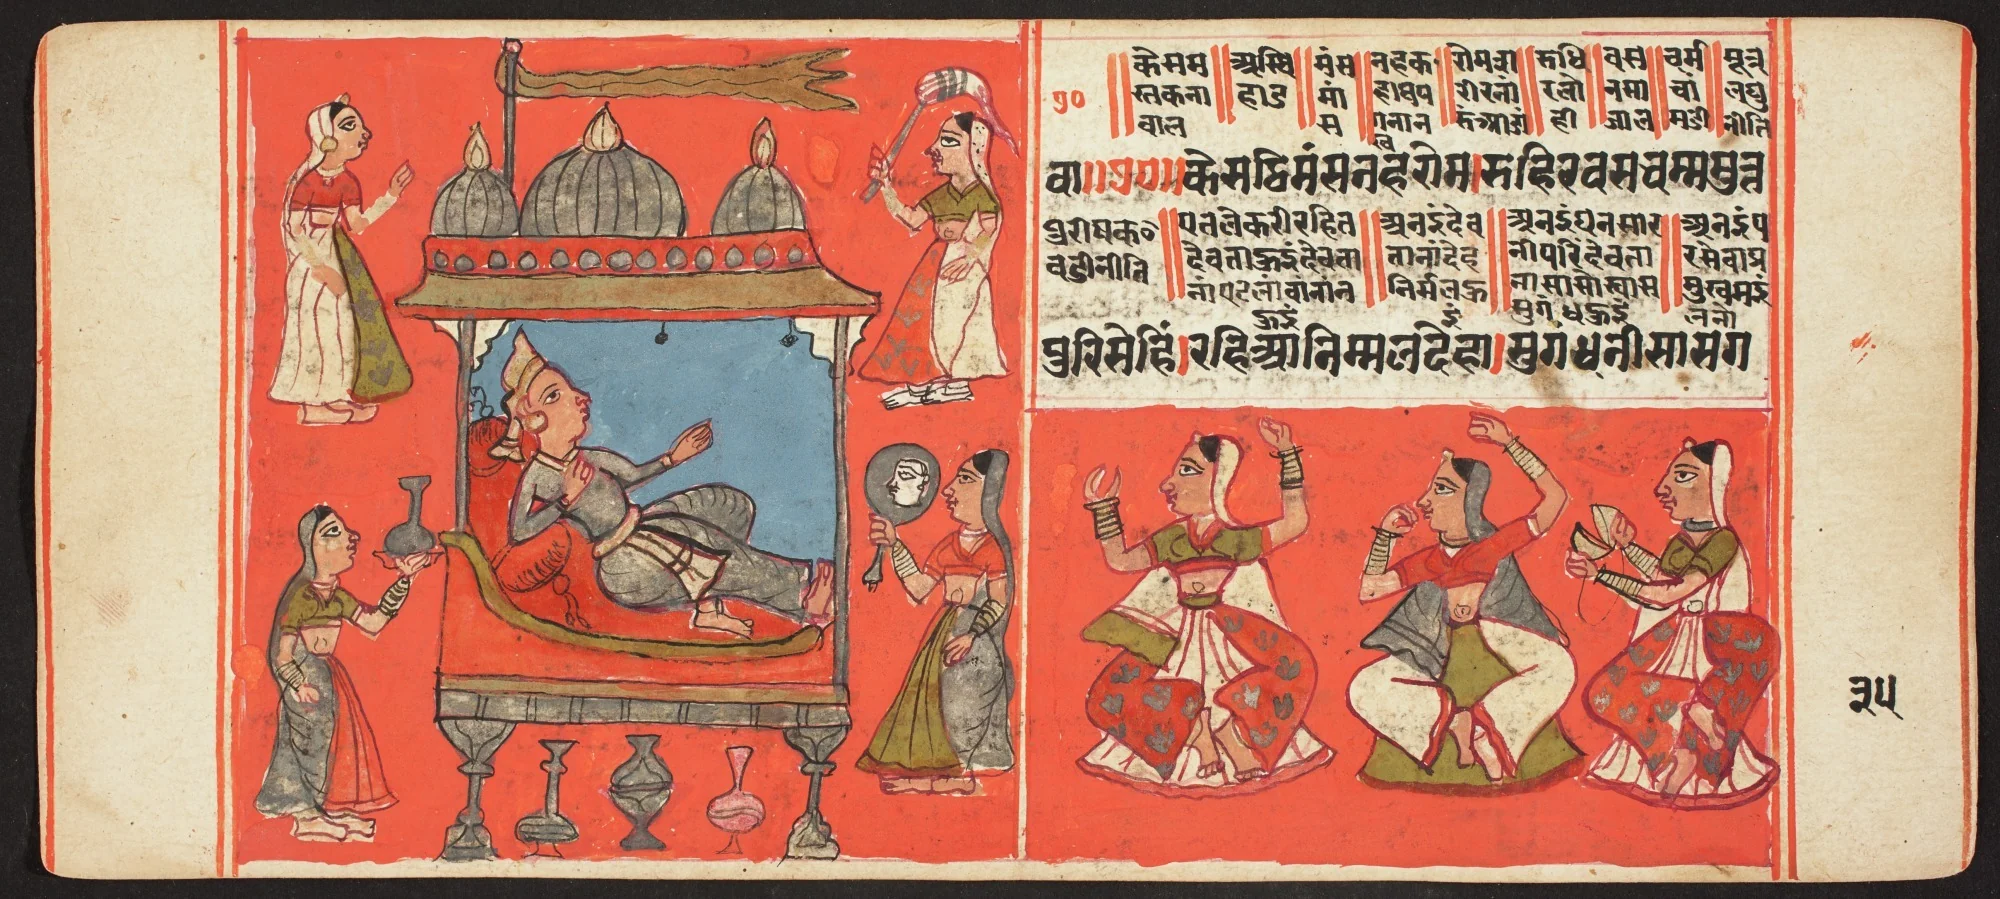 केसमस्तकना वाल ॥ अस्थि हाड ॥ मंस मांस ॥ नह कहा षपगनानख ॥ रोम शरीरनां रुंआडां ॥ रुधिर लोही ॥ वस नसा जाल ॥ चर्म चांमडी ॥ मूत्र लघुनीति
१९०
वा॥१९०॥ केसठिमंसनहरोम।रुहिरवसचम्ममुत्त
पुरीष क० वडीनीति ॥ एतले करी रहित देवता हुइं देवतानां पटलां वानांन हुइं ॥ अनइं देवतानां देह निर्मल हुइं ॥ अनइं घनसारनी परि देवताना सासोस्वास सुगंध हुइं ॥ अनइं परसेवा प्रमुख मइलनो
पुरिसेहिं।रहिआनिम्मलदेहा।सुगंधनीसासग
३५